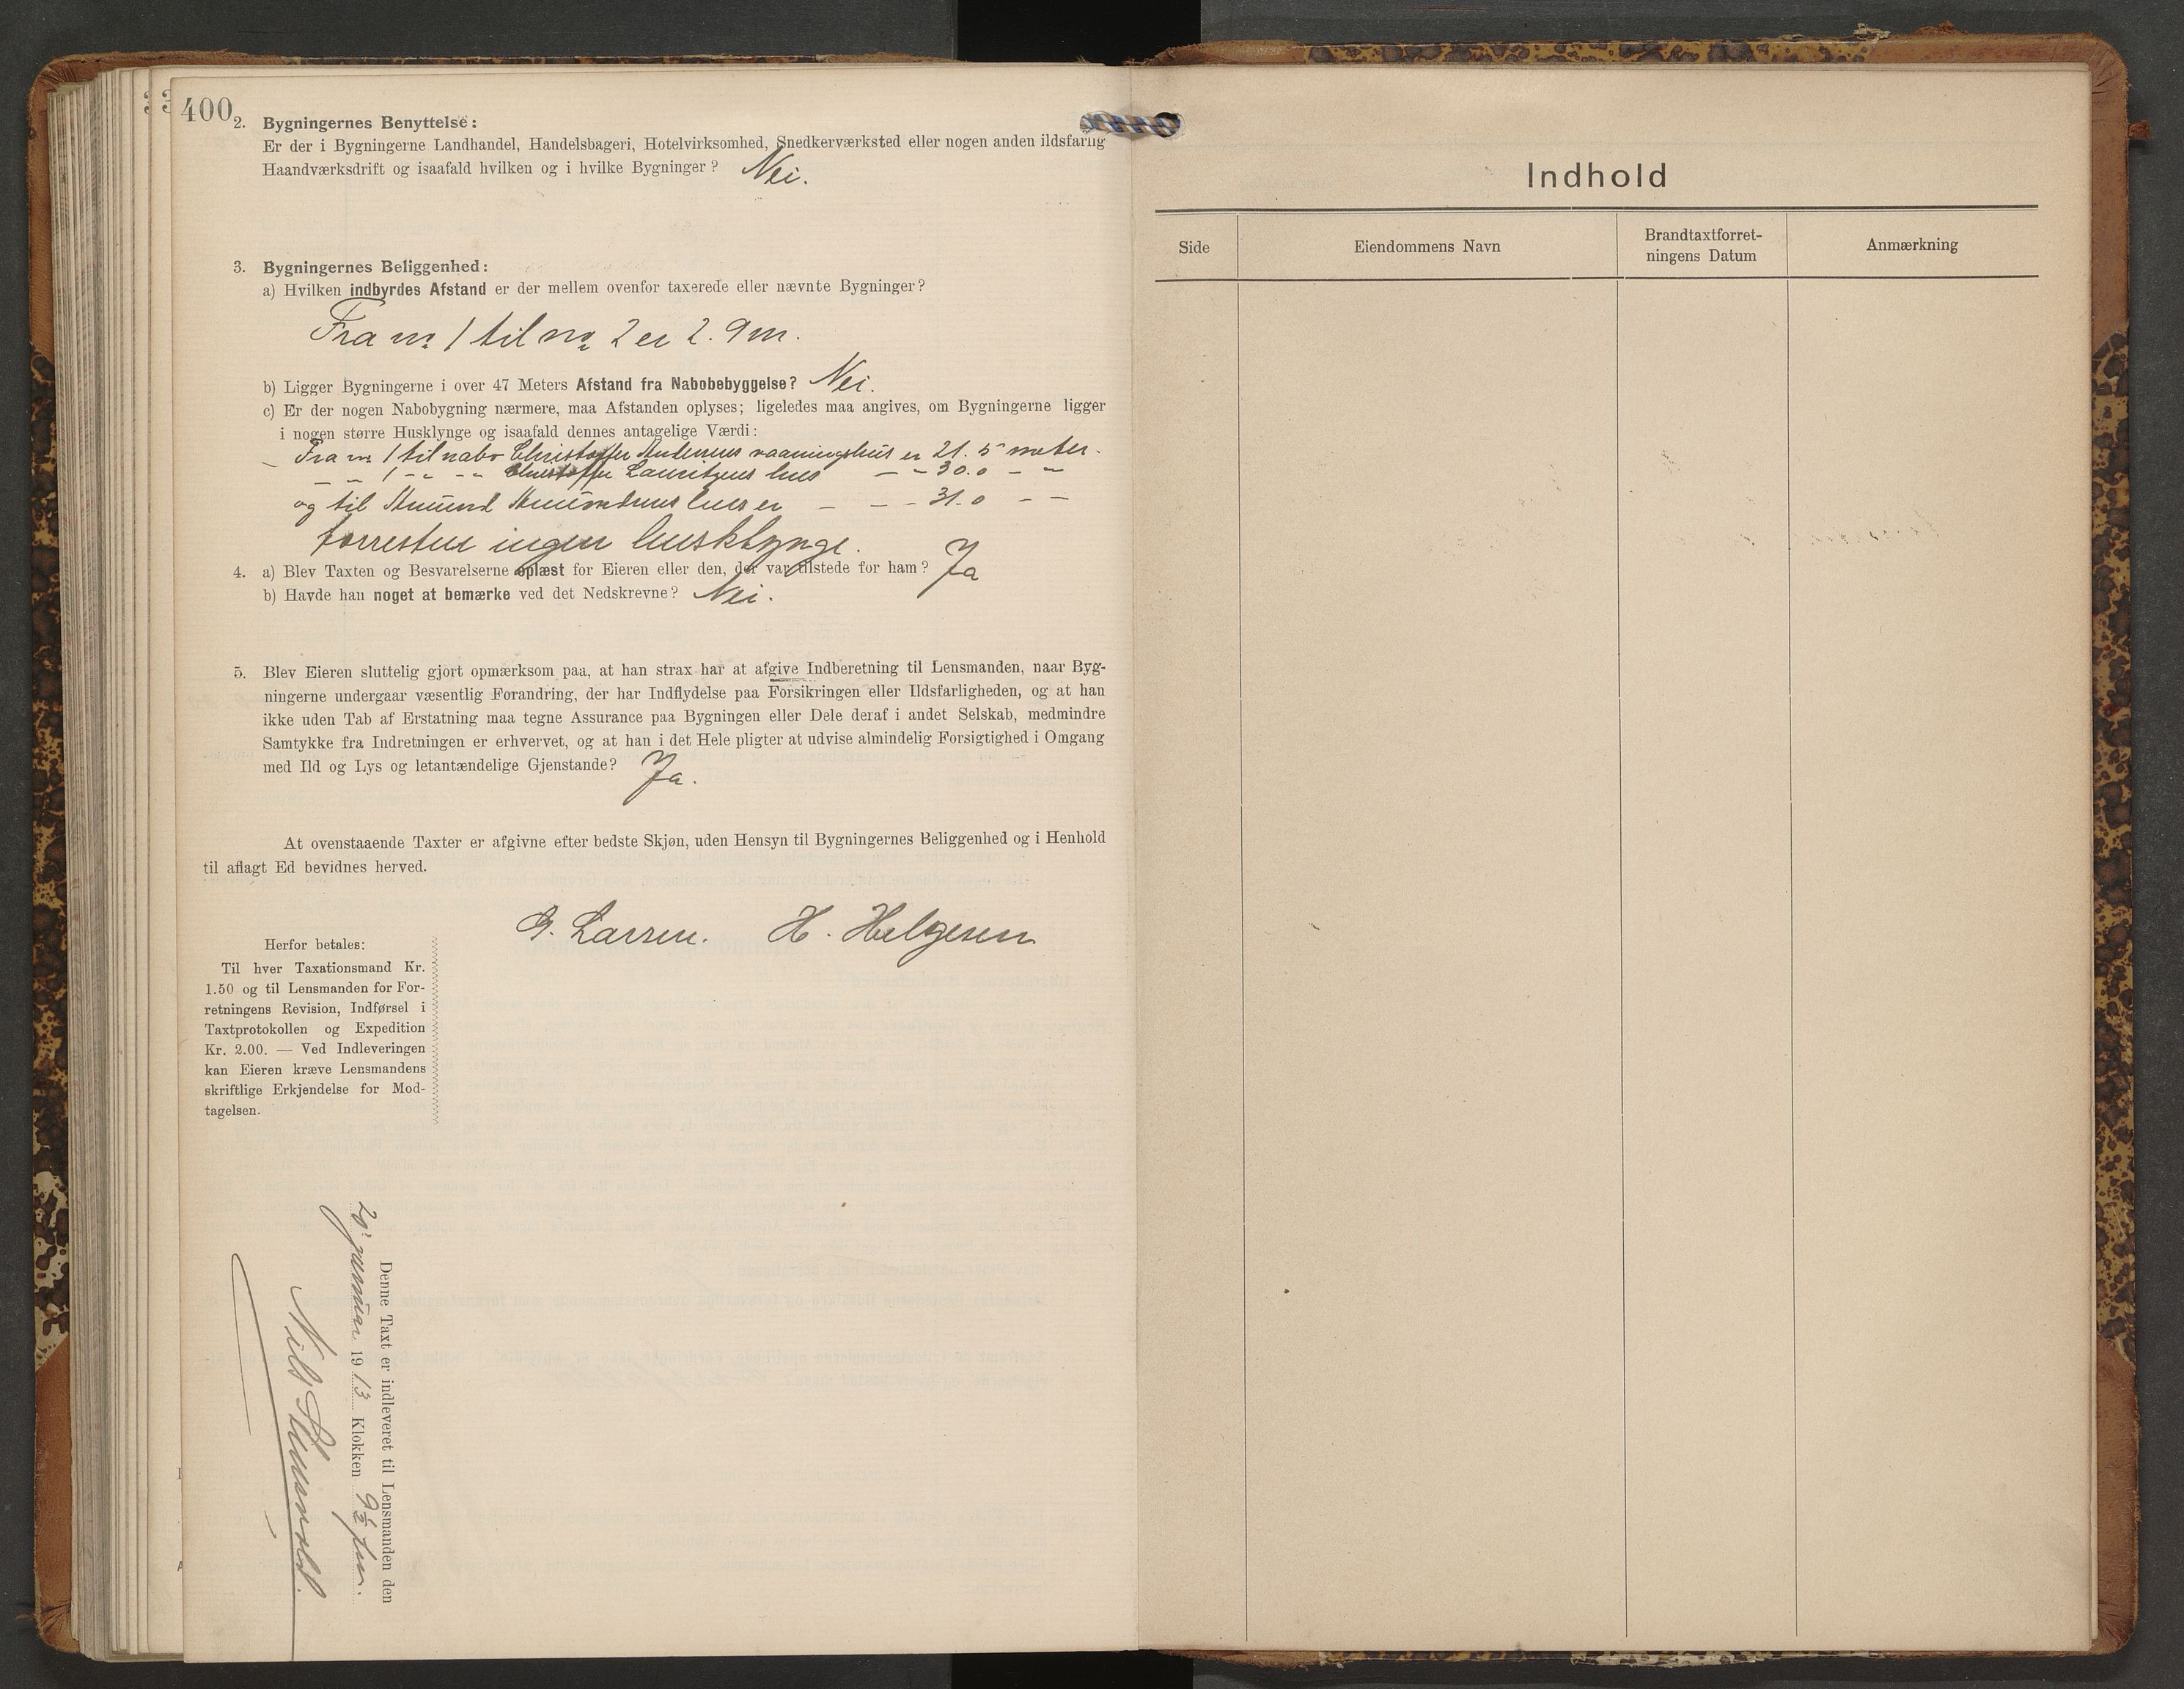 400
2. Bygningernes Benyttelse:
Er der i Bygningerne Landhandel, Handelsbageri, Hotelvirksomhed, Snedkerværksted eller nogen anden ildsfarlig
Haandværksdrift og isaafald hvilken og i hvilke Bygninger? Nei.
3. Bygningernes Beliggenhed:
a) Hvilken indbyrdes Afstand er der mellem ovenfor taxerede eller nævnte Bygninger?
Fra nr 1 til nr 2 er 2.9 m.
b) Ligger Bygningerne i over 47 Meters Afstand fra Nabobebyggelse? Nei.
c) Er der nogen Nabobygning nærmere, maa Afstanden oplyses; ligeledes maa angives, om Bygningerne ligger
i nogen større Husklynge og isaafald dennes antagelige Værdi:
Fra nr 1 til nabo Christoffer vaaningshus er 21.5 meter.
- " 1 - " - " Christoffer Lauritzens hus - - 30.0 - "
og til hus er - - - 31.0 - -
forresten ingen husklynge.
4. a) Blev Taxten og Besvarelserne oplæst for Eieren eller den, der var tilstede for ham? Ja
b) Havde han noget at bemærke ved det Nedskrevne? Nei.
5. Blev Eieren sluttelig gjort opmærksom paa, at han strax har at afgive Indberetning til Lensmanden, naar Byg-
ningerne undergaar væsentlig Forandring, der har Indflydelse paa Forsikringen eller Ildsfarligheden, og at han
ikke uden Tab af Erstatning maa tegne Assurance paa Bygningen eller Dele deraf i andet Selskab, medmindre
Samtykke fra Indretningen er erhvervet, og at han i det Hele pligter at udvise almindelig Forsigtighed i Omgang
med Ild og Lys og letantændelige Gjenstande? Ja.
At ovenstaaende Taxter er afgivne efter bedste Skjøn, uden Hensyn til Bygningernes Beliggenhed og i Henhold
til aflagt Ed bevidnes herved.
G. Larsen. H. Helgesen
Herfor betales:
Til hver Taxationsmand Kr.
1.50 og til Lensmanden for For-
retningens Revision, Indførsel i
Taxtprotokollen og Expedition
Kr. 2.00. — Ved Indleveringen
kan Eieren kræve Lensmandens
skriftlige Erkjendelse for Mod-
tagelsen.
Denne Taxt er indleveret til Lensmanden den
januar 1913 Klokken 9½ fm.
Nils
Indhold
Side
Eiendommens Navn
Brandtaxtforret-
ningens Datum
Anmærkning